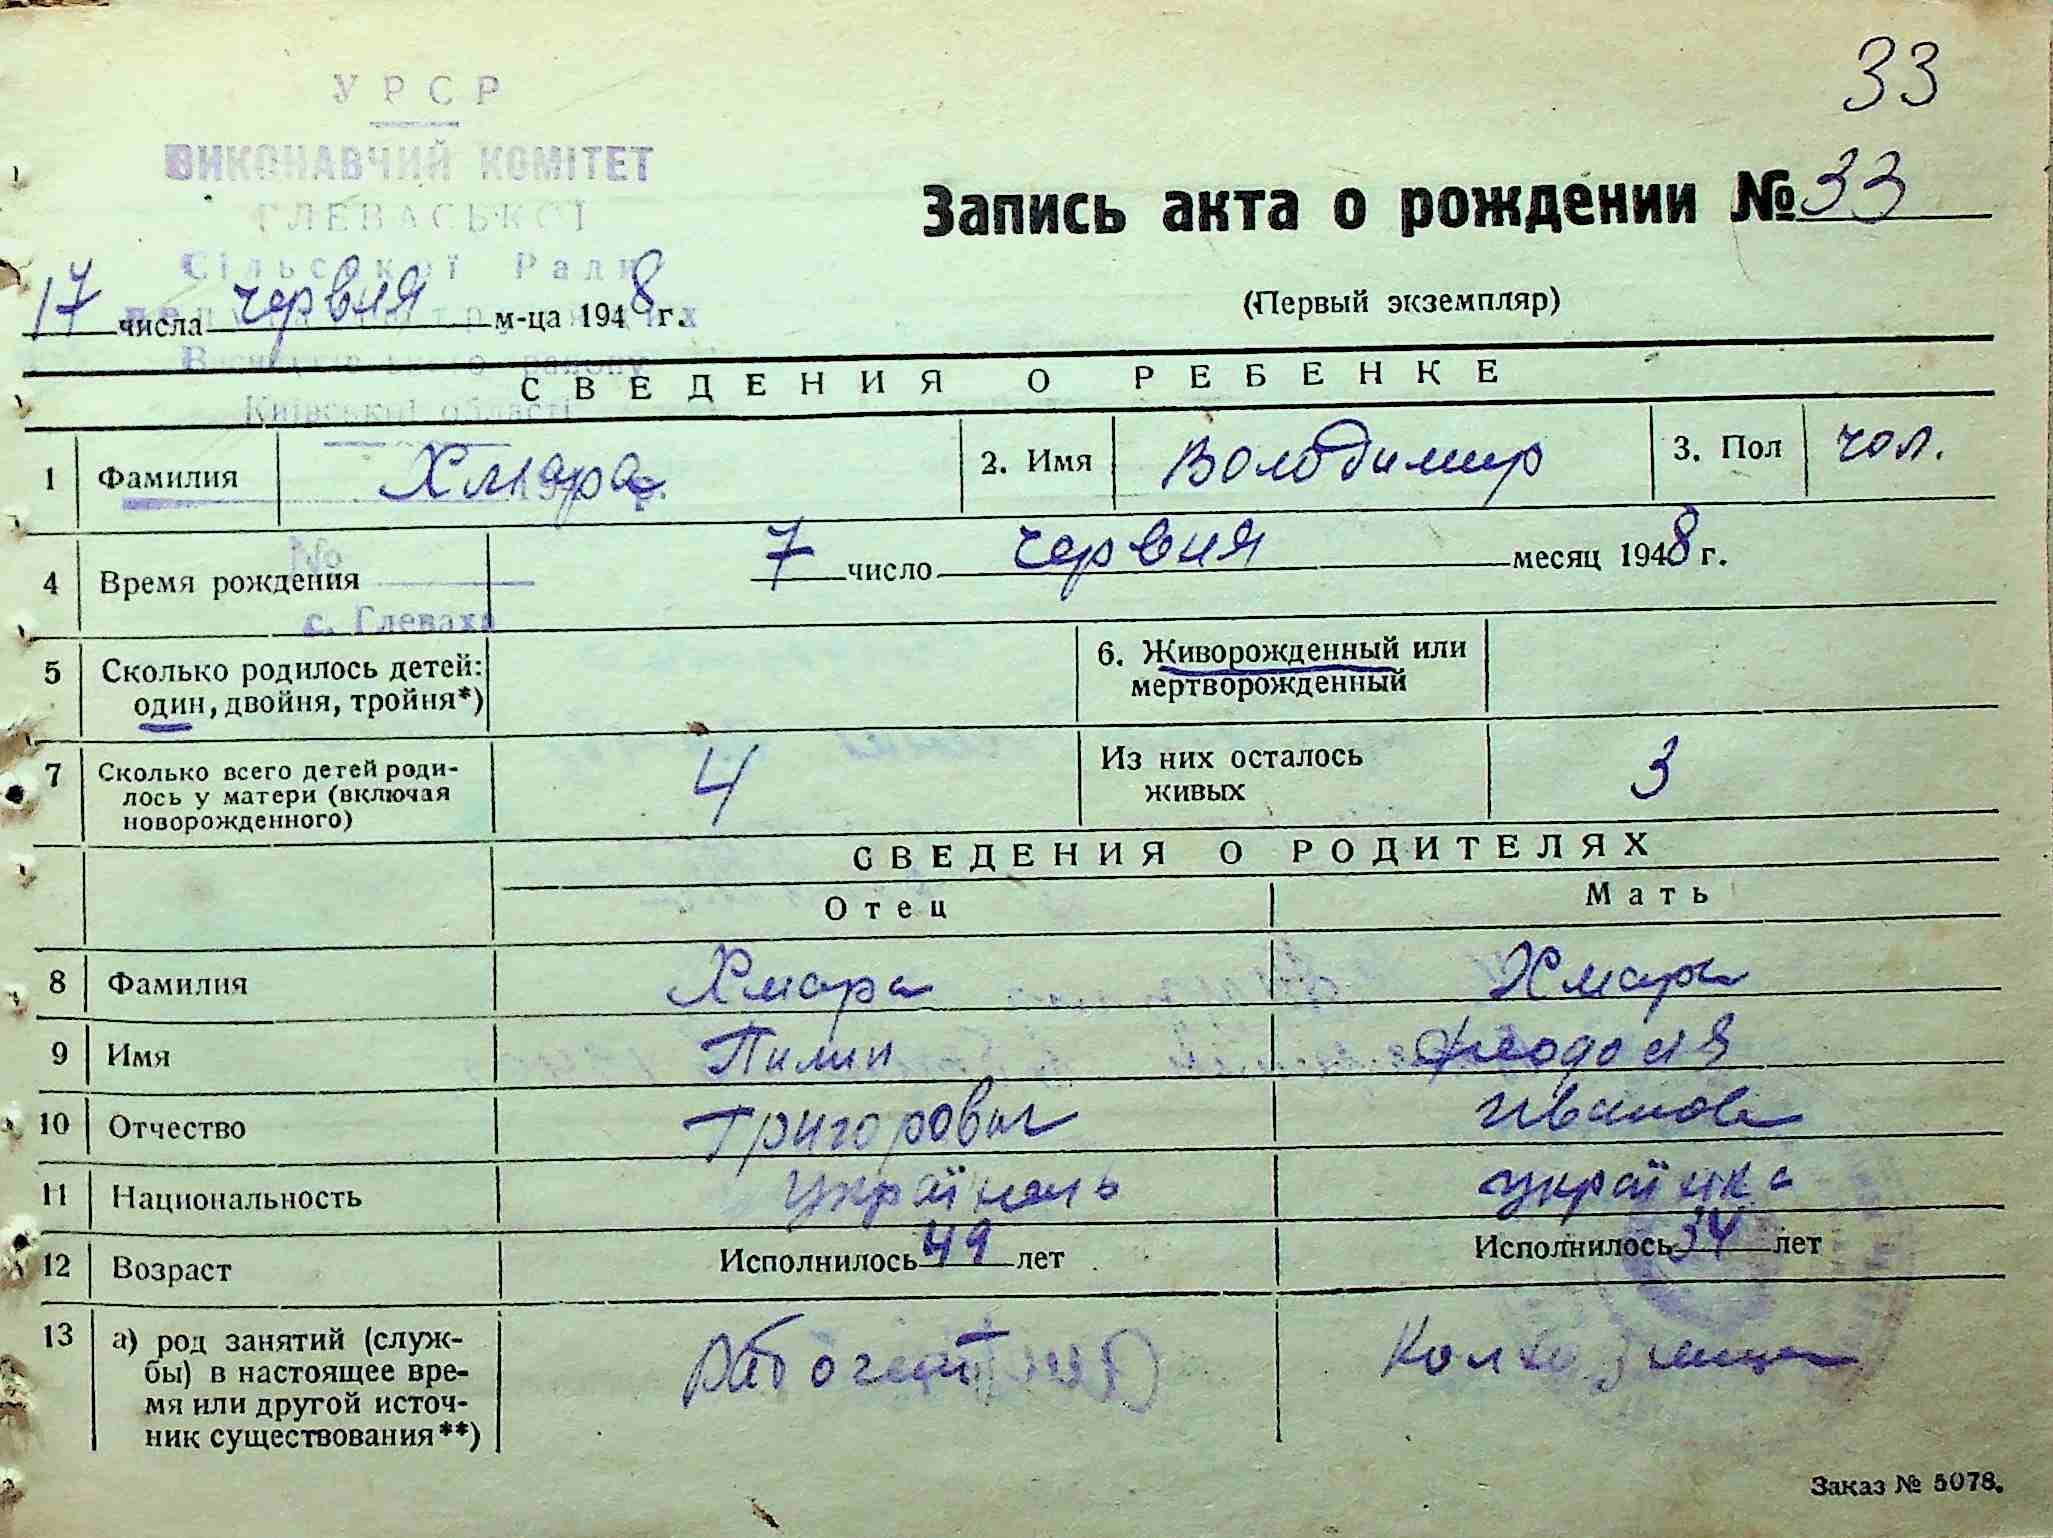 33
УРСР
ВИКОНАВЧИЙ КОМІТЕТ
ГЛЕВАСЬКОЇ
Сільської Ради
Запись акта о рождении № 33
(Первый экземпляр)
17 числа червня м-ца 1948 г.
району
Київської області
СВЕДЕНИЯ О РЕБЕНКЕ
1 Фамилия Хмара 2. Имя Володимир 3. Пол чол.
№
4 Время рождения 7 число червня месяц 1948 г.
с. Глеваха
5 Сколько родилось детей: один, двойня, тройня*)
6. Живорожденный или мертворожденный
7 Сколько всего детей родилось у матери (включая новорожденного) 4 Из них осталось живых 3
СВЕДЕНИЯ О РОДИТЕЛЯХ
Отец Мать
8 Фамилия Хмара Хмара
9 Имя Пилип Феодосія
10 Отчество Григорович Ивановна
11 Национальность українець українка
12 Возраст Исполнилось 49 лет Исполнилось 34 лет
13 а) род занятий (служ-
бы) в настоящее вре-
мя или другой источ-
ник существования**)
Колхозница
Заказ № 5078.